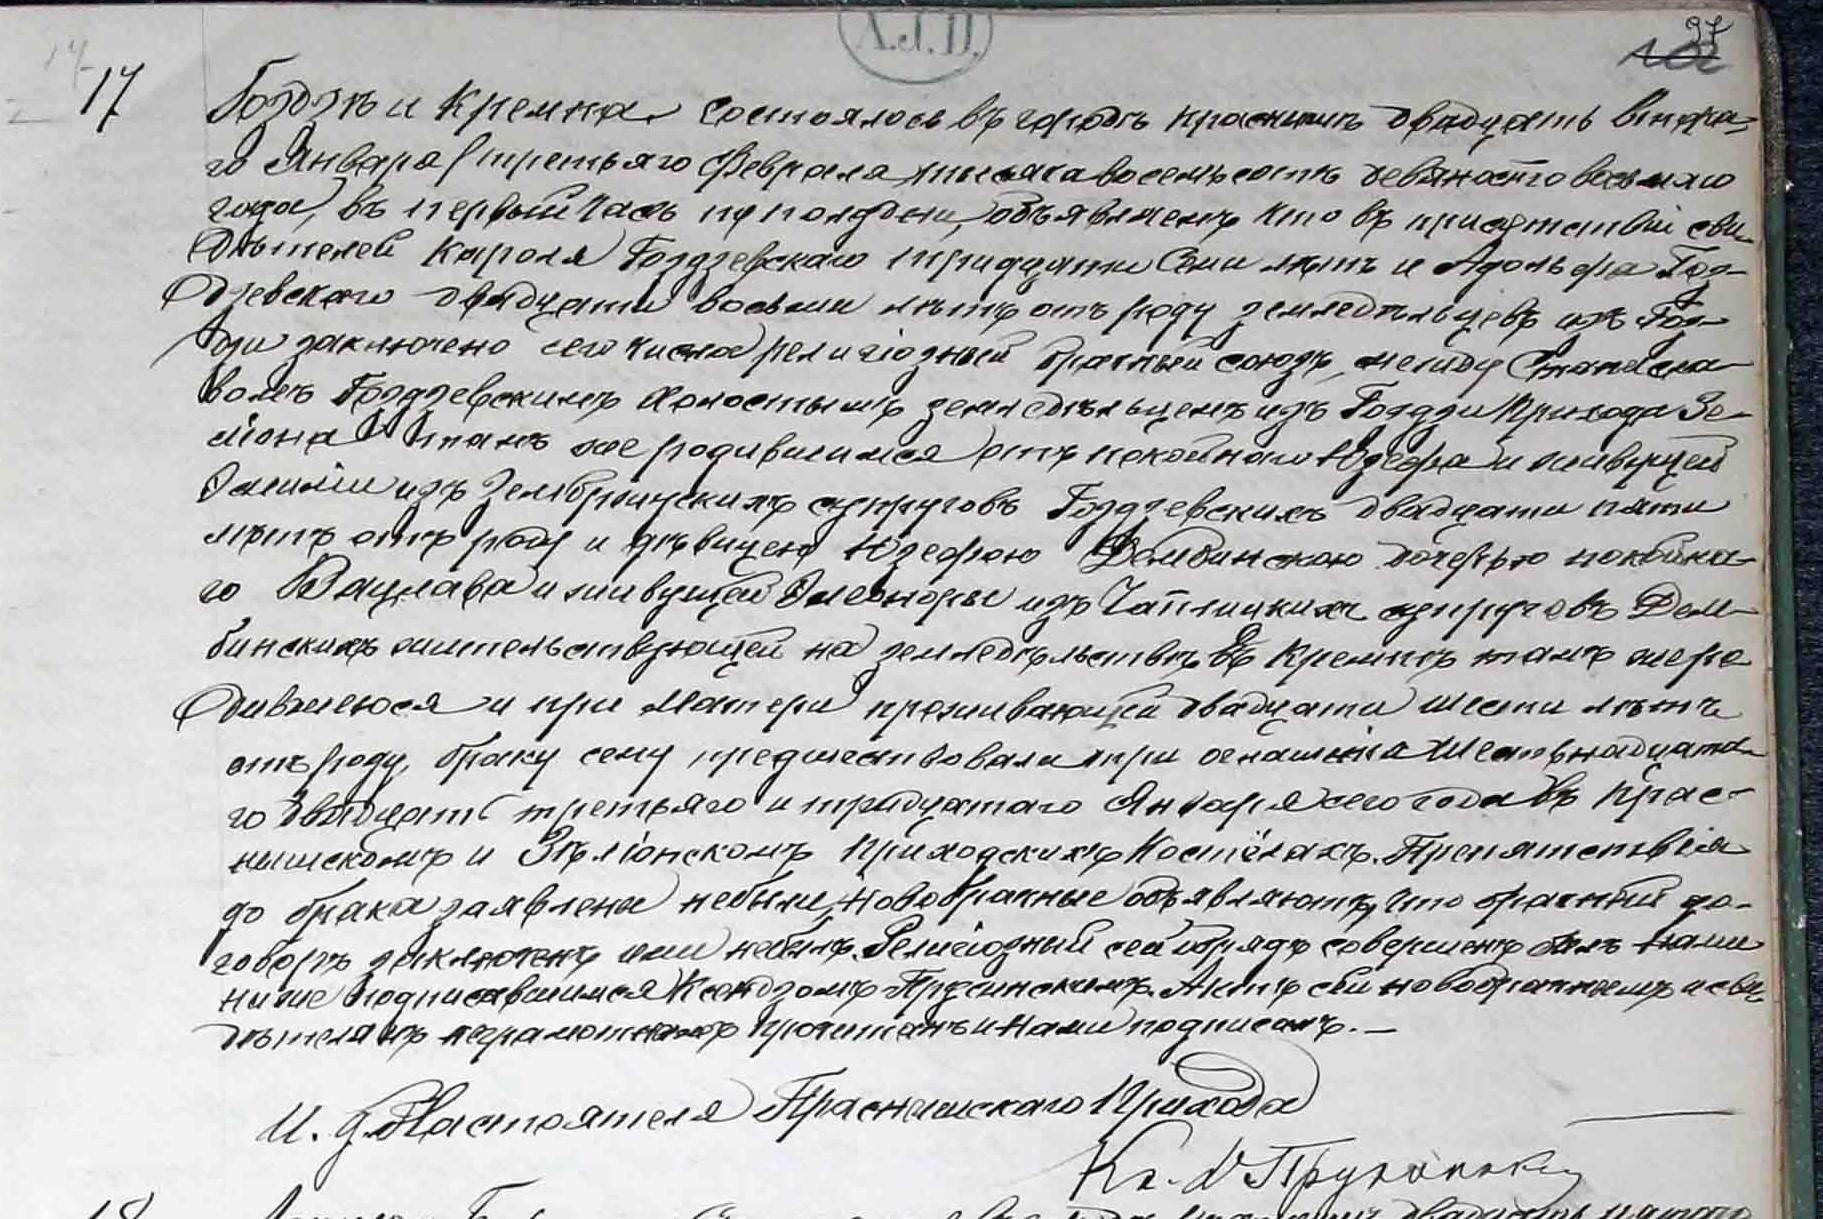 А.Г.П.
97
14
17
Гоздзь и Кремна. Состоялось въ городѣ Праснышѣ двадцать втора-
го Января / третьяго Февраля тысяча восемьсотъ девяностого восьмаго
года, въ первый часъ пополудни, объявляемъ что въ присутствіи сви-
дѣтелей Кароля Гоздзевскаго тридцати семи лѣтъ и Адольфа Гоз-
дзевскаго двадцати восьми лѣтъ отъ роду земледѣльцевъ изъ Гоз-
дзи заключено сего числа религіозный брачный союзъ, между Станисла-
вомъ Гоздзевскимъ холостымъ земледѣльцемъ изъ Гоздзи Прихода Зе-
ліона тамъ же родившимся отъ покойнаго Юзефа и живущей
Эмиліи изъ супруговъ Гоздзевскихъ двадцати пяти
лѣтъ отъ роду и дѣвицею Юзефою Дембинскою дочерью покойна-
го Вацлава и живущей Элеоноры изъ Чаплицкихъ супруговъ Дем-
бинскихъ жительствующей на земледѣльствѣ въ Кремнѣ тамъ же ро-
дившеюся и при Матери проживающей двадцати шести лѣтъ
отъ роду, браку сему предшествовали три оглашенія Шестьнадцата-
го двадцать третьяго и тридцатаго Января сего года въ Прас-
нышскомъ и Зѣліонскомъ Приходскихъ Костёлахъ. Препятствія
до брака заявлены небыли, новобрачные объявляютъ, что брачный до-
говоръ заключенъ ими небылъ. Религіозный сей обрядъ совершенъ былъ нами
ниже подписавшимся Ксендзомъ Актъ сей новобрачнымъ и сви-
дѣтелямъ неграмотнымъ прочитанъ и нами подписанъ. —
И. д. Настоятеля Праснышскаго Прихода
Кс.
18